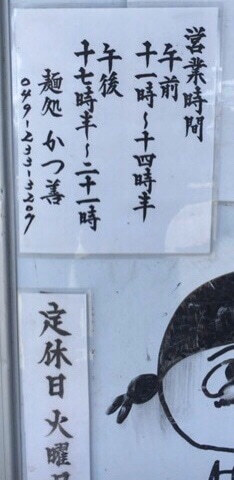 営業時間
午前
十一時〜十四時半
午後
十七時半〜二十一時
麺処 かつ善
049-233-3209
定休日 火曜日